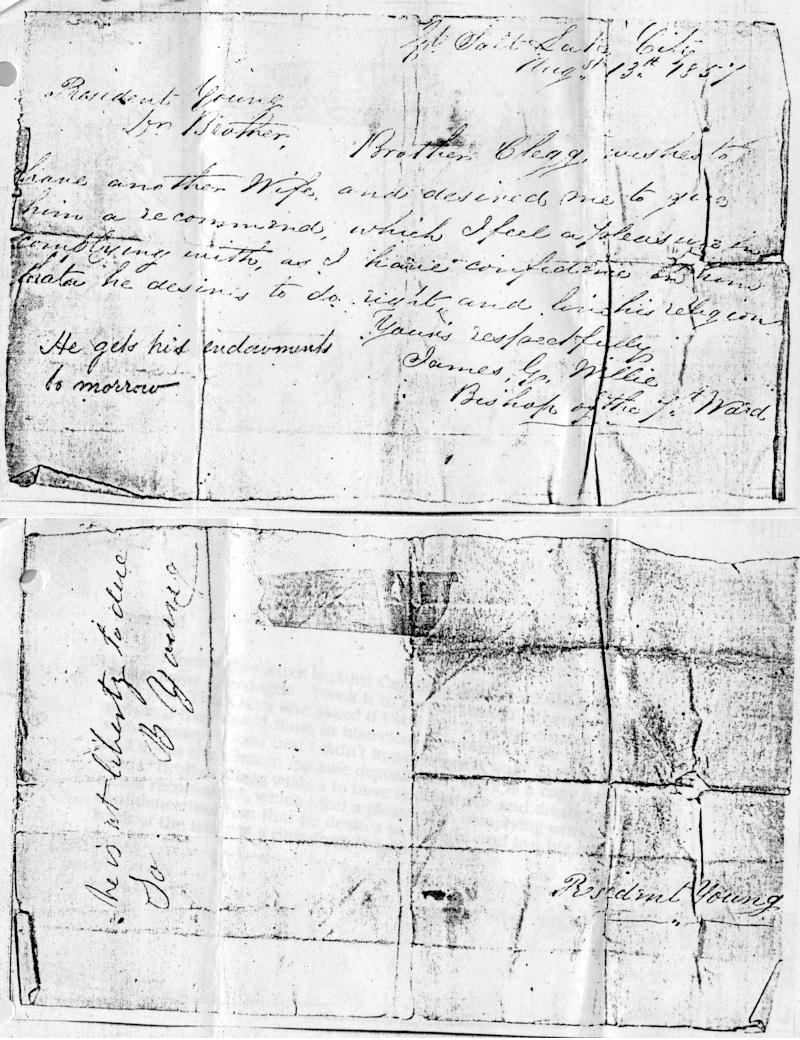 Gt Salt Lake City
Augst 13th 1857
President Young
Dr Brother,
Brother Clegg, wishes to
have another Wife, and desired me to give
him a recommend, which I feel a pleasure in
complying with, as I have confidence in him
that he desires to do right and live his religion
Yours respectfully
James, G, Willie
Bishop of the 7th Ward
He gets his endowments
to morrow
he is at liberty to due
So B Young
President Young